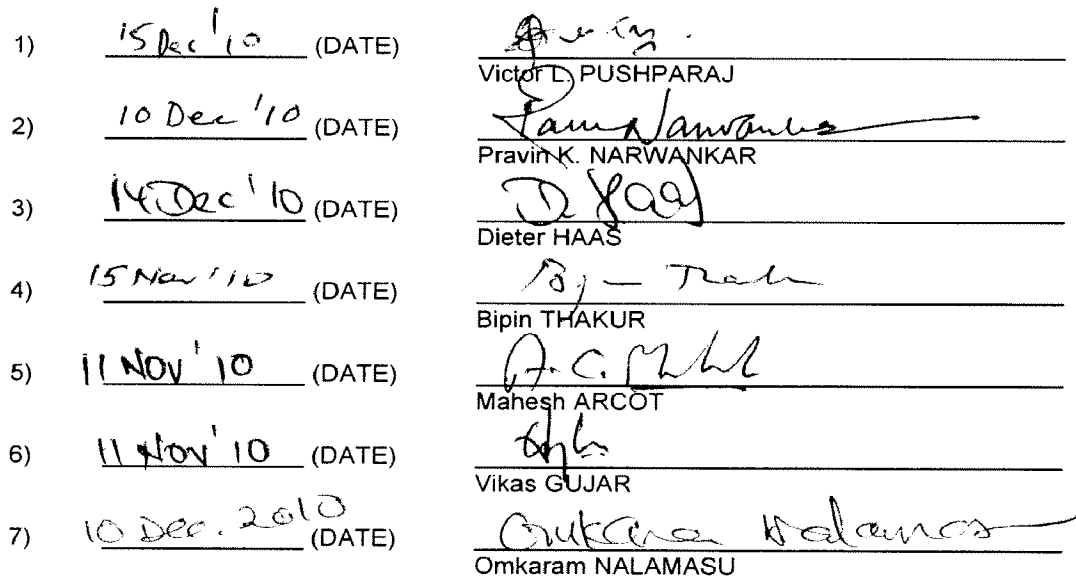 1) 15 Dec '10 (DATE)
Victor L. PUSHPARAJ
2) 10 Dec '10 (DATE)
Pravin K. NARWANKAR
3) 14 Dec '10 (DATE) D. Haas
Dieter HAAS
4) 15 Nov '10 (DATE)
Bipin THAKUR
5) 11 NOV '10 (DATE)
Mahesh ARCOT
6) 11 Nov '10 (DATE)
Vikas GUJAR
7) 10 Dec. 2010 (DATE)
Omkaram NALAMASU